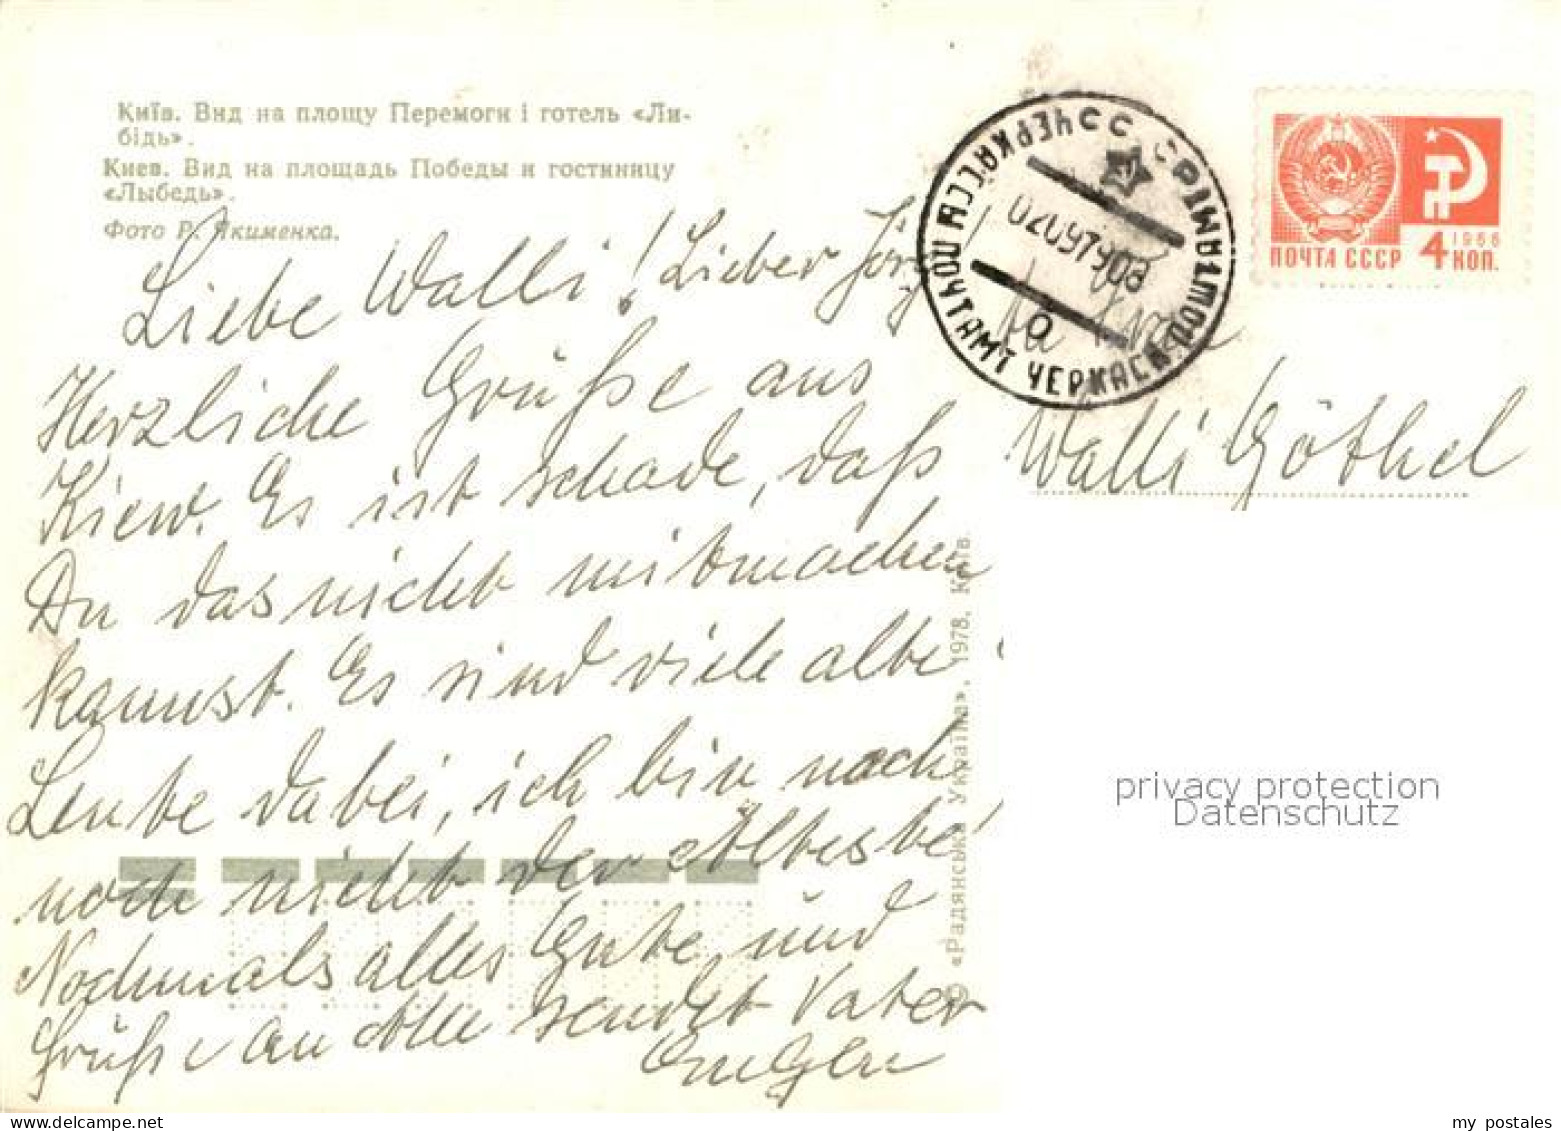 Київ. Вид на площу Перемоги і готель «Ли-
бідь».
Киев. Вид на площадь Победы и гостиницу
«Лыбедь».
Фото Р. Якименка.
Liebe Walli! Lieber Jörg!
Herzliche Grüße aus
Kiew. Es ist schade, daß
Du das nicht mitmachen
kannst. Es sind viele alte
Leute dabei, ich bin noch
noch nicht der Älteste!
Nochmals alles Gute und
Grüße an Alle sendet Vater
СССР
ЧЕРКАССЫ ПОЧТАМТ
ПОШТАМТ
02097908
а
ПОЧТА СССР 4 КОП.
1966
Walli Göthel
© «Радянська Україна». 1978. Київ.
privacy protection
Datenschutz
my postales